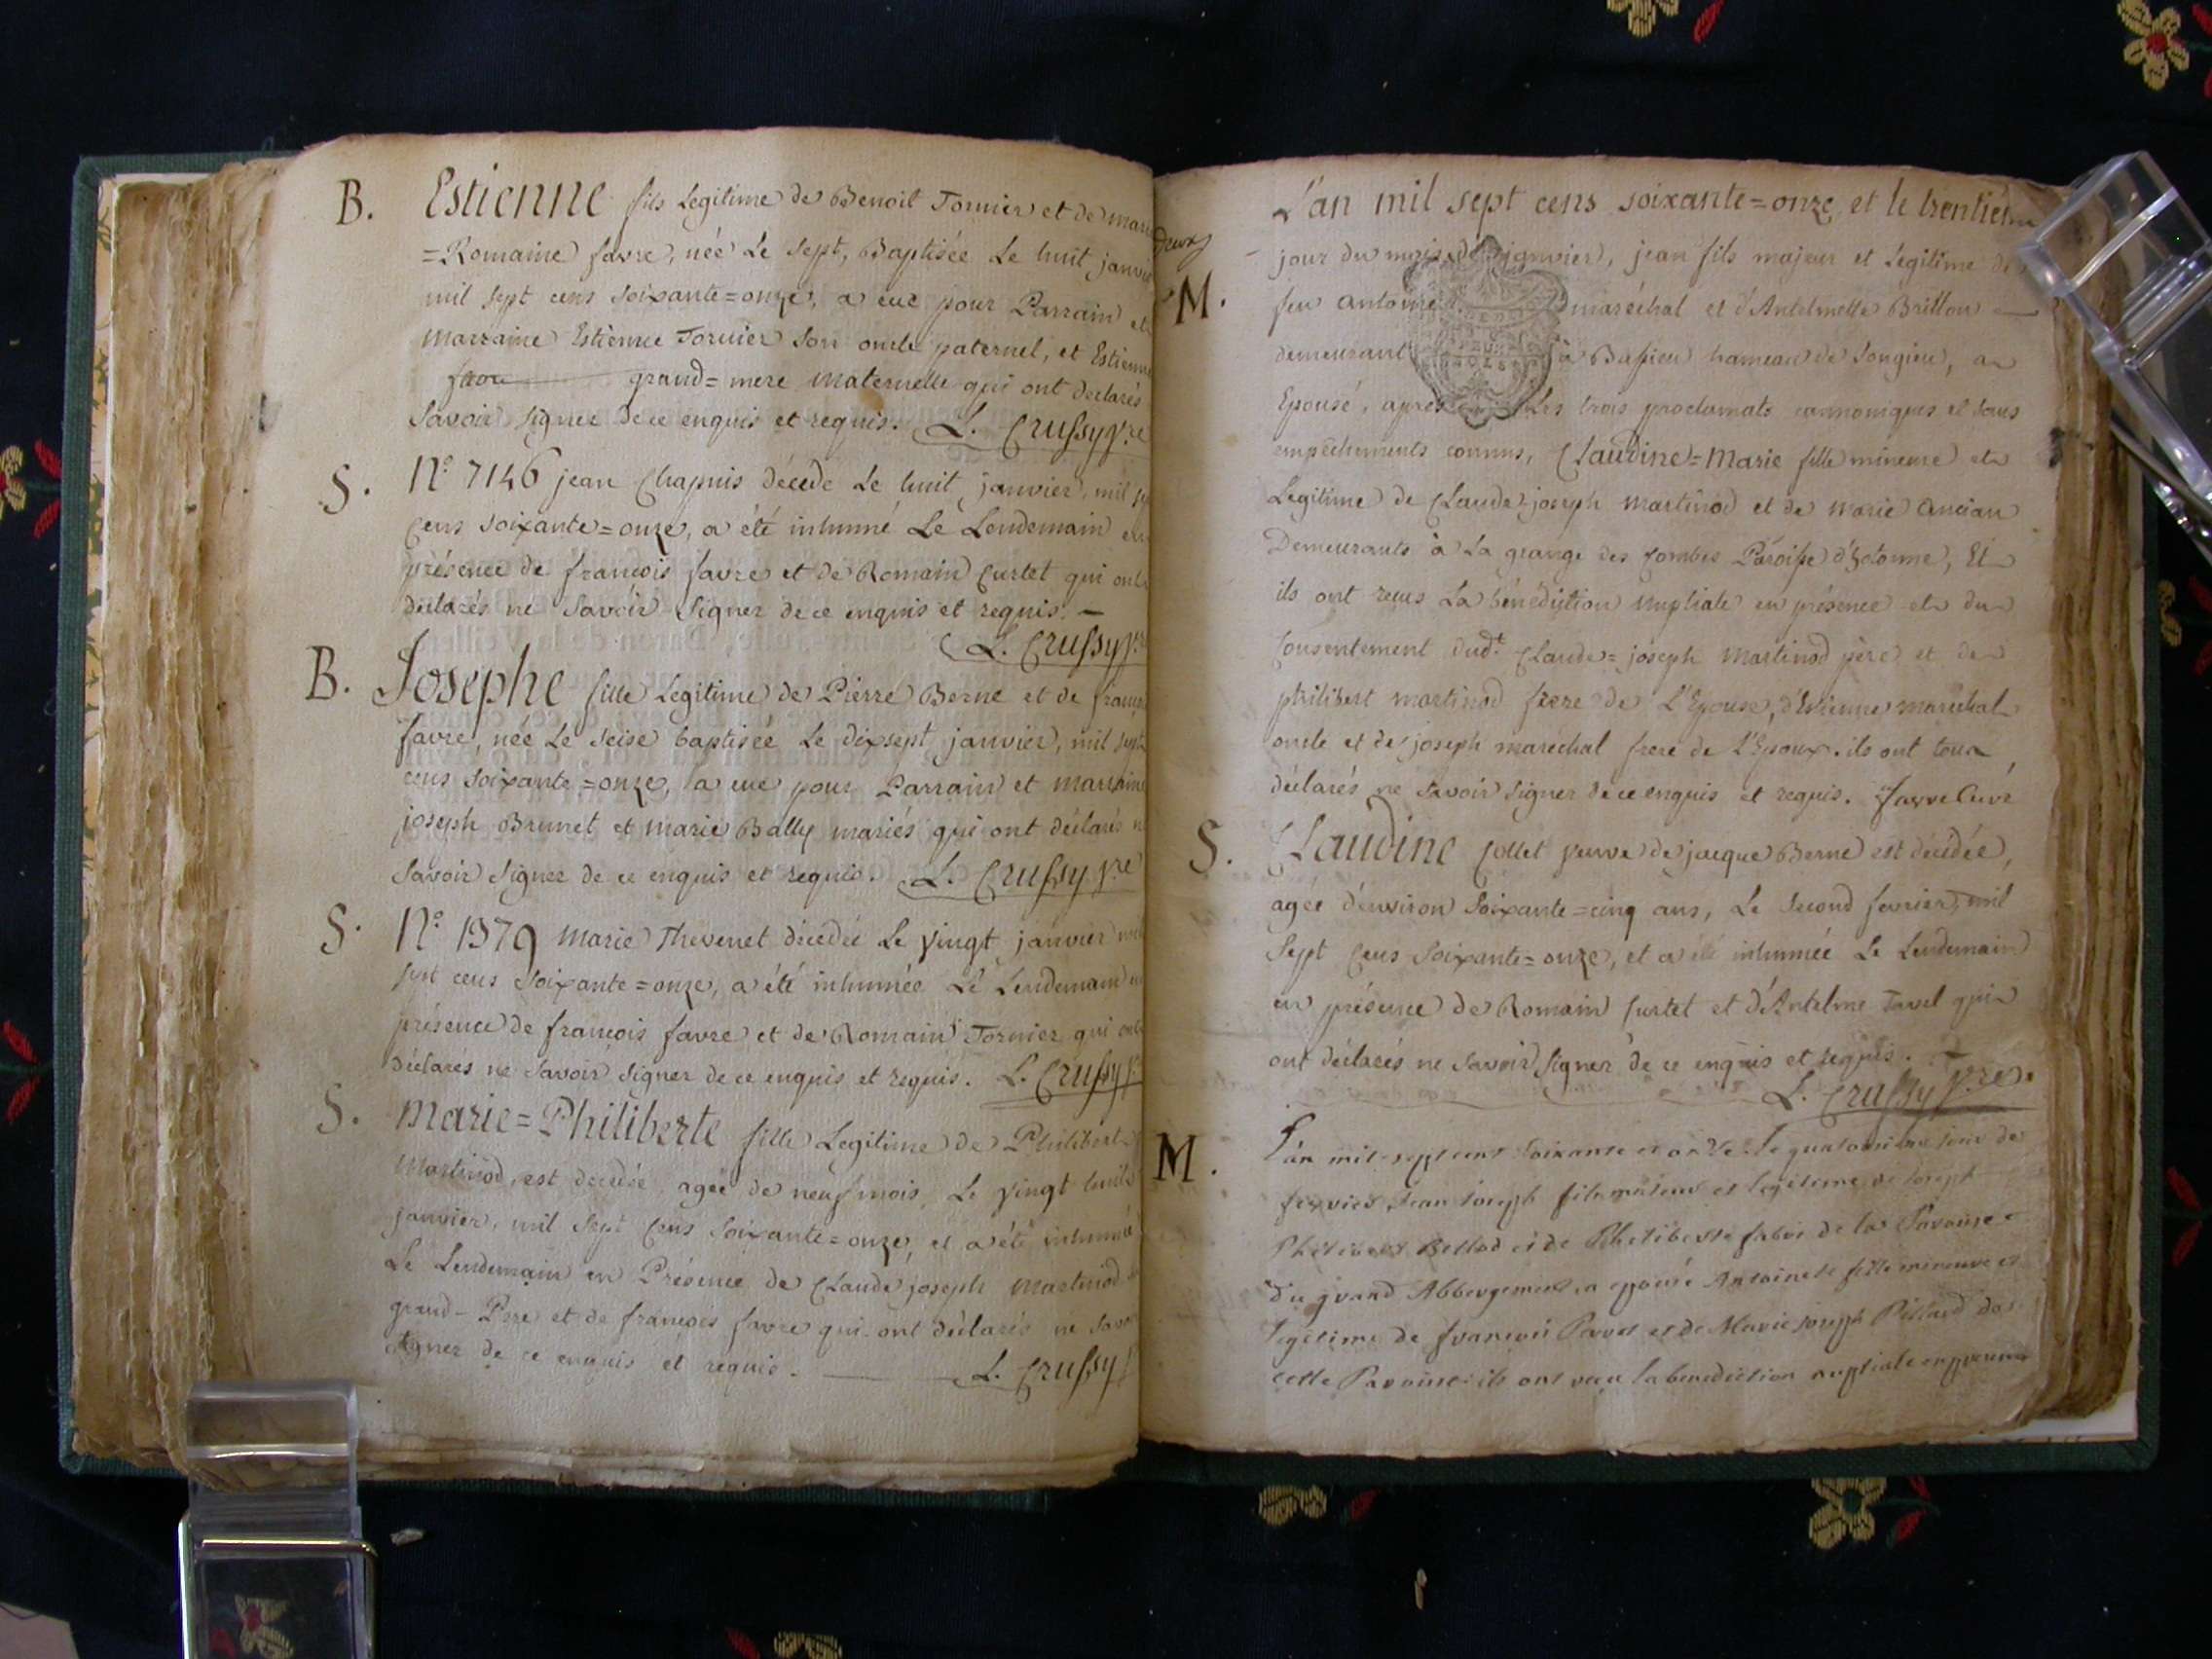 B. Estienne fils Legitime de Benoit Tornier et de marie
=Romaine favre, née Le sept, Baptisée Le huit janvier
mil sept cens soixante=onze, a eue pour Parrain et
marraine Estienne Tornier son oncle paternel, et Estienne
favre grand=mere maternelle qui ont declarés
savoir signer de ce enquis et requis. L. Crussy p.re
S. N.º 7146 jean Chapuis décédé Le huit janvier, mil
cens soixante=onze, a été inhumé Le Lendemain en
présence de françois favre et de Romain Curtet qui ont
declarés ne savoir signer de ce enquis et requis. –
L. Crussy p.re
B. Josephe fille Legitime de Pierre Berne et de
favre, née Le seise baptisée Le dixsept janvier, mil sept
cens soixante=onze, a eue pour Parrain et marraine
joseph Brunet et marie Bally mariés qui ont déclarés
savoir signer de ce enquis et requis. L. Crussy p.re
S. N.º 1379 marie Thevenet décédée Le vingt janvier mil
sept cens soixante=onze, a été inhumée Le Lendemain en
présence de françois favre et de Romain Tornier qui ont
déclarés ne savoir signer de ce enquis et requis. L. Crussy
S. marie=Philiberte fille Legitime de Philibert
Martinod, est decedée, agée de neuf mois, Le vingt huit
janvier, mil sept cens soixante=onze, et a été inhumée
Le Lendemain en Présence de Claude joseph martinod
grand-Pere et de françois favre qui ont déclarés ne savoir
signer de ce enquis et requis. L. Crussy
deux
M. L'an mil sept cens soixante=onze et le trentieme
jour du mois de janvier, jean fils majeur et Legitime de
feu antoine maréchal et d'Antelmette Brillon
demeurant à Bassieu hameau de songieu, a
Epousé, après Les trois proclamats cannoniques et sans
empêchements connus, Claudine=Marie fille mineure et
Legitime de Claude-joseph martinod et de marie ancian
Demeurants à La grange des combes Paroisse d'hotonne, Et
ils ont reçus La bénédiction nuptiale en présence et du
consentement dud.t Claude=joseph martinod père et de
philibert martinod frere de L'Epouse, d'Estienne maréchal
oncle et de joseph marechal frere de L'Epoux. ils ont tous
déclarés ne savoir signer de ce enquis et requis. favre Curé
S. Claudine Collet veuve de jacque Berne est décédée,
agée d'environ soixante=cinq ans, Le second fevrier, mil
sept cens soixante=onze, et a été inhumée Le Lendemain
en présence de Romain Curtet et d'Antelme Tavel qui
ont déclarés ne savoir signer de ce enquis et requis.
L. Crussy p.re.
M. L'an mil sept cent soixante et onze le quatorzieme jour de
fevrier Jean Joseph fils majeur et legitime de Joseph
Philibert Bellod et de Philiberte fabre de la Paroisse
du grand Abbergement, a epousé Antoinete fille mineure et
legitime de francois Pavet et de Marie Joseph Pillard de
cette Paroisse: ils ont recu la benediction nuptiale en presence